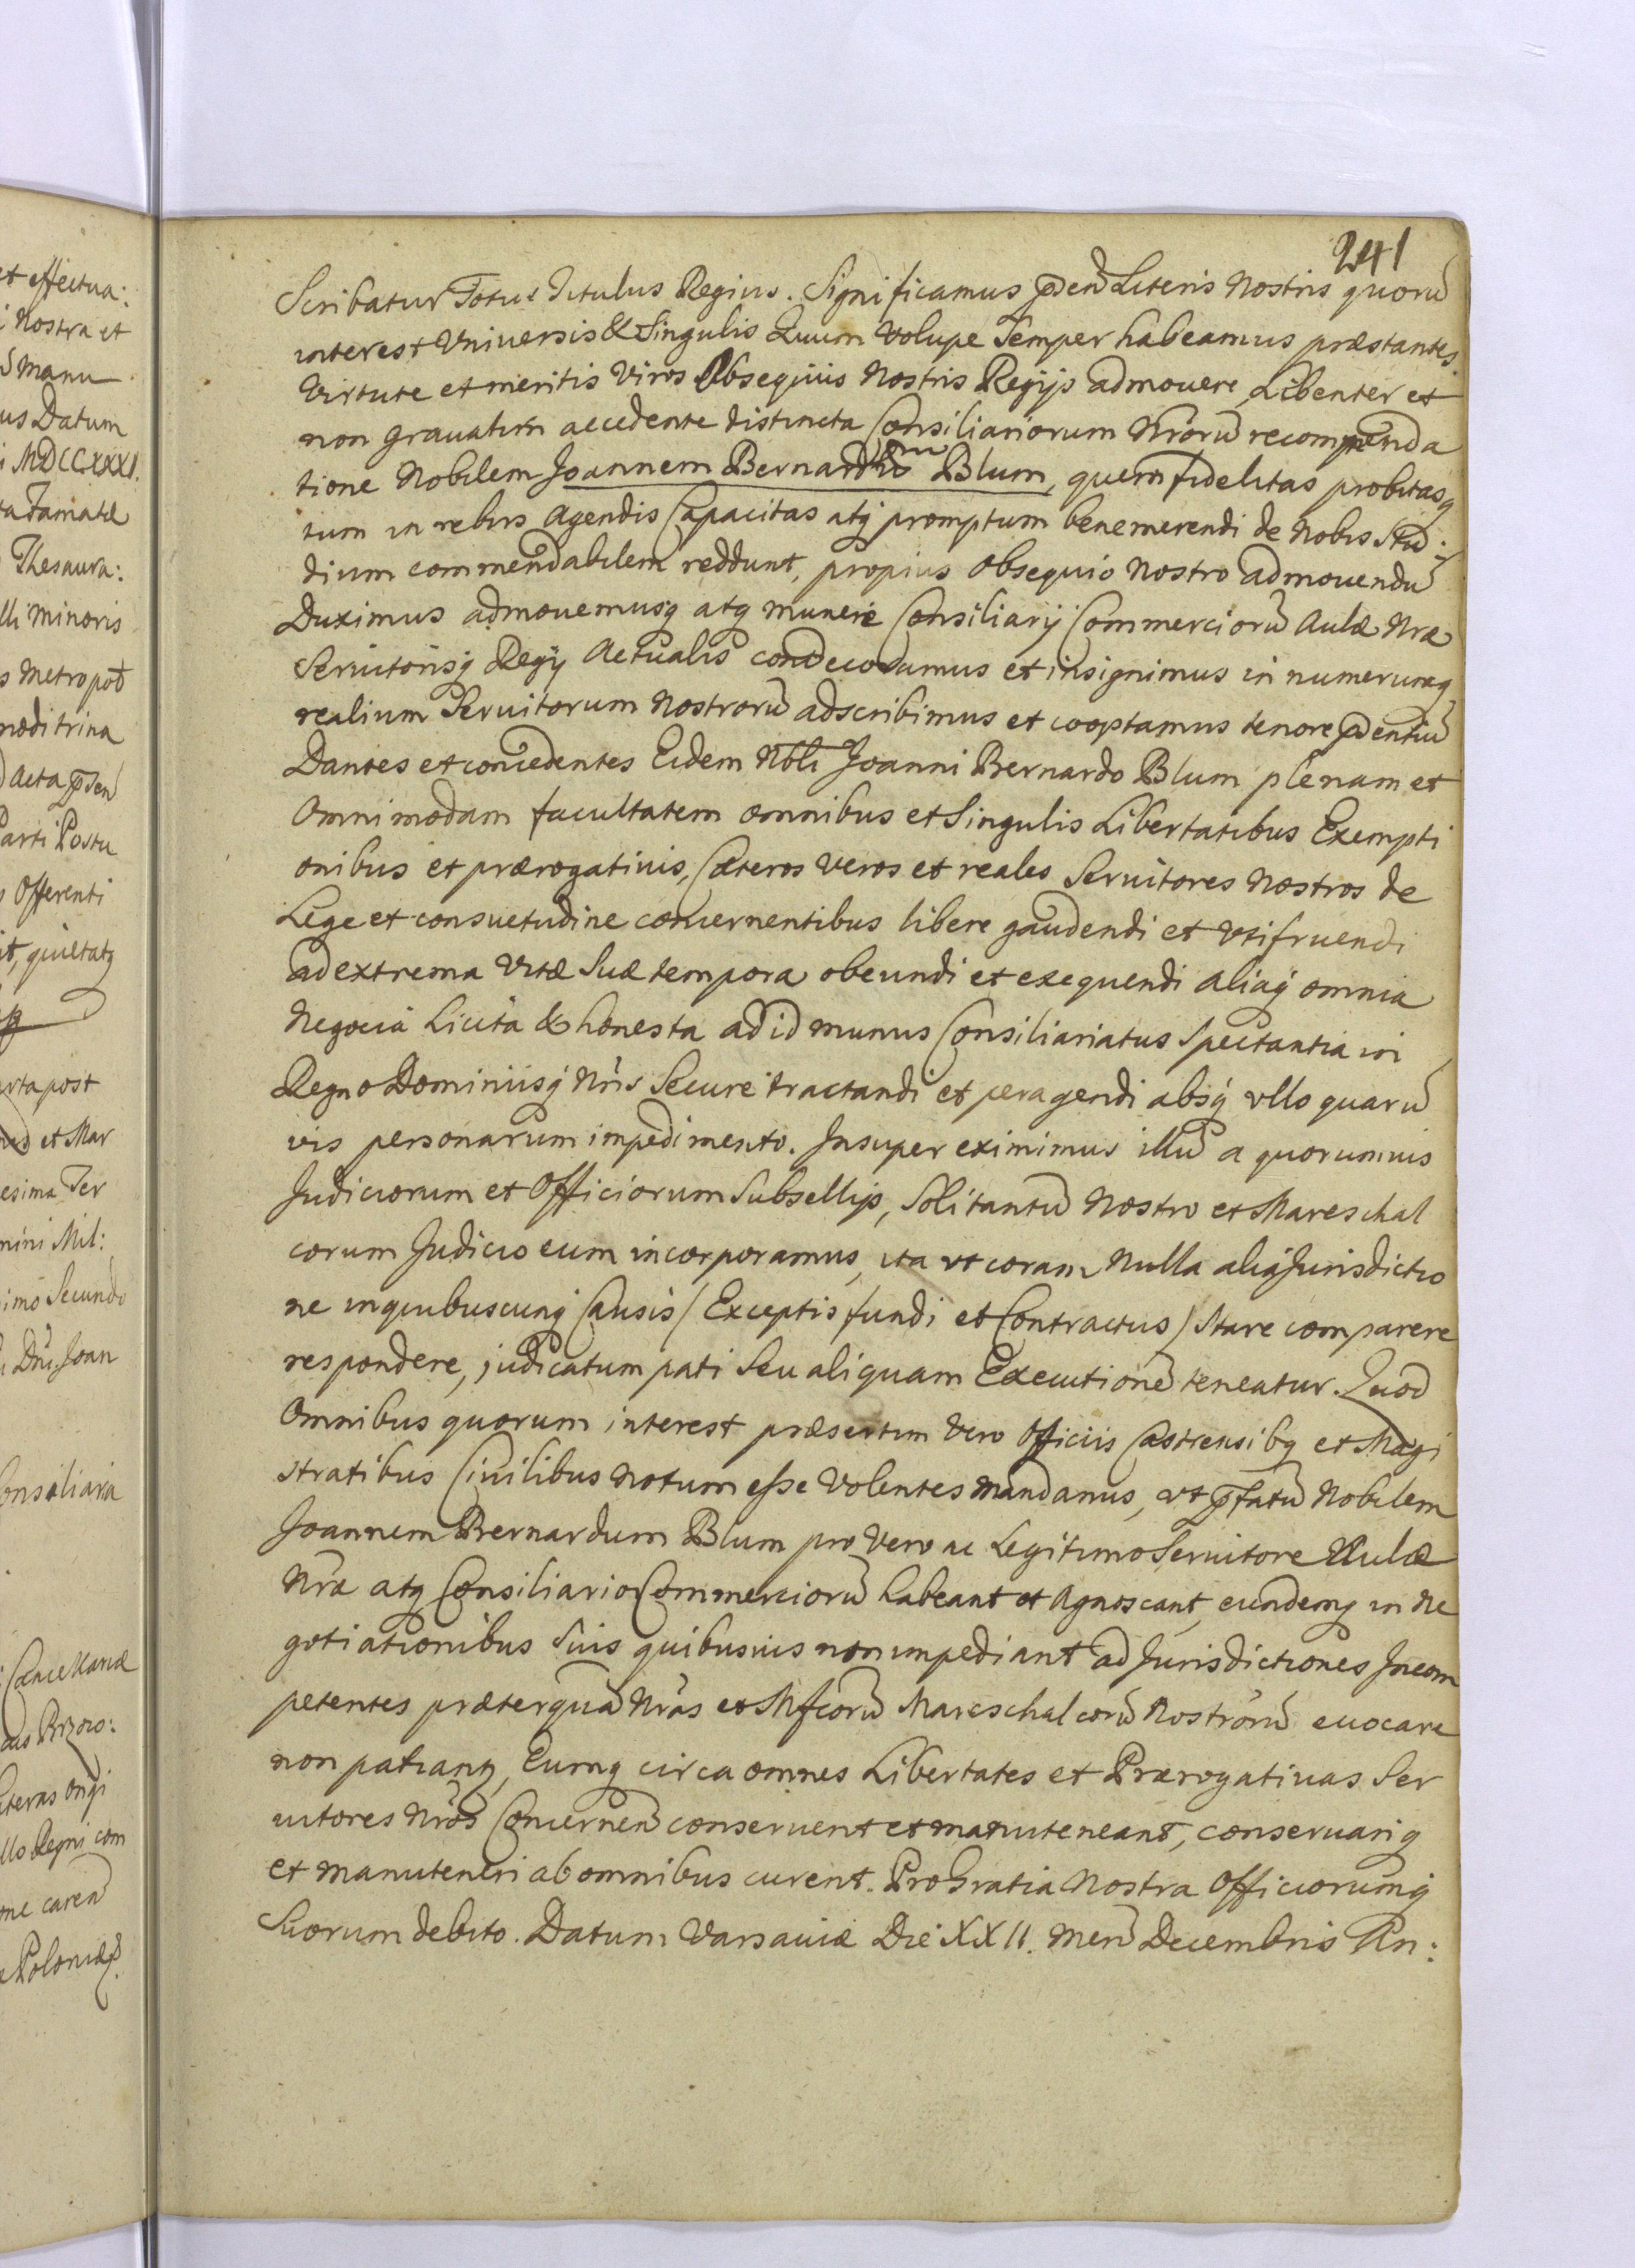 241
Scribatur Totus Titulus Regius. Significamus p̃sen̄ Literis Nostris quorū
interest Vniuersis & Singulis Quum volupe Semper habeamus præstantes
Virtute et meritis Viros Obsequiis Nostris Regijs admouere, Libenter et
non grauatim accedente distincta Consiliariorum Nrorū recommenda
tione Nobilem Joannem Bernardum Blum, quem fidelitas probitasq
tum in rebus agendis Capacitas atq promptum benemerendi de Nobis Stu:
dium commendabilem reddunt, propius obsequio Nostro admouendū
Duximus admouemusq atq munere Consiliarij Commerciorū Aulæ Nræ
Seruitorisq Regij Actualis condecoramus et insignimus in numerumq
realium Seruitorum Nostrorū adscribimus et cooptamus tenore p̃sentiū
Dantes et concedentes Eidem Nbli Joanni Bernardo Blum plenam et
Omnimodam facultatem omnibus et Singulis Libertatibus Exempti
onibus et prærogatiuis, Cæteros veros et reales Seruitores Nostros de
Lege et consuetudine concernentibus libere gaudendi et vtifruendi
ad extrema vitæ Suæ tempora obeundi et exequendi aliaq omnia
Negocia Licita & honesta ad id munus Consiliariatus Spectantia in
Regno Dominiisq Nris Secure tractandi et peragendi absq vllo quarū
vis personarum impedimento. Insuper eximimus illū a quorumuis
Judiciorum et Officiorum Subsellijs, Soli tantū Nostro et Mareschal
corum Judicio eum incorporamus, ita vt coram Nulla aliaJurisdictio
ne inquibuscunq Causis / Exceptis fundi et Contractus / Stare comparere
respondere, judicatum pati Seu aliquam Executionē teneatur. Quod
Omnibus quorum interest præsertim Vero Officiis Castrensibq et Magi
stratibus Ciuilibus Notum esse Volentes mandamus, vt p̃fatū Nobilem
Joannem Bernardum Blum pro Vero ac Legitimo Seruitore Aulæ
Nræ atq Consiliario Commerciorū habeant et Agnoscant, eundemq in Ne
gotiationibus Suis quibusuis non impediant ad Jurisdictiones Incom
petentes præterquā Nras et Mfcorū Mareschalcorū Nostrorū euocare
non patiantq, Eumq circa omnes Libertates et Prærogatiuas Ser
uitores Nros Concernen̄ conseruent et manuteneant, conseruariq
et manuteneri ab omnibus curent. Pro Gratia Nostra Officiorumq
Suorum debito. Datum Varsauiæ Die XXII. Men̄ Decembris An:
et effectua:
Nostra et
manu
us Datum
MDCCXXXI.
Thesaura:
lli minoris
s Metropol
Acta p̃sen̄
Parti Postu
Offerenti
it, quietatq
rta post
et Mar
esima Ter
mini Mil:
imo Secundo
Dni Joan
Consiliaria
Cancellariæ
llo Regni com
one caren̄
Poloniæ